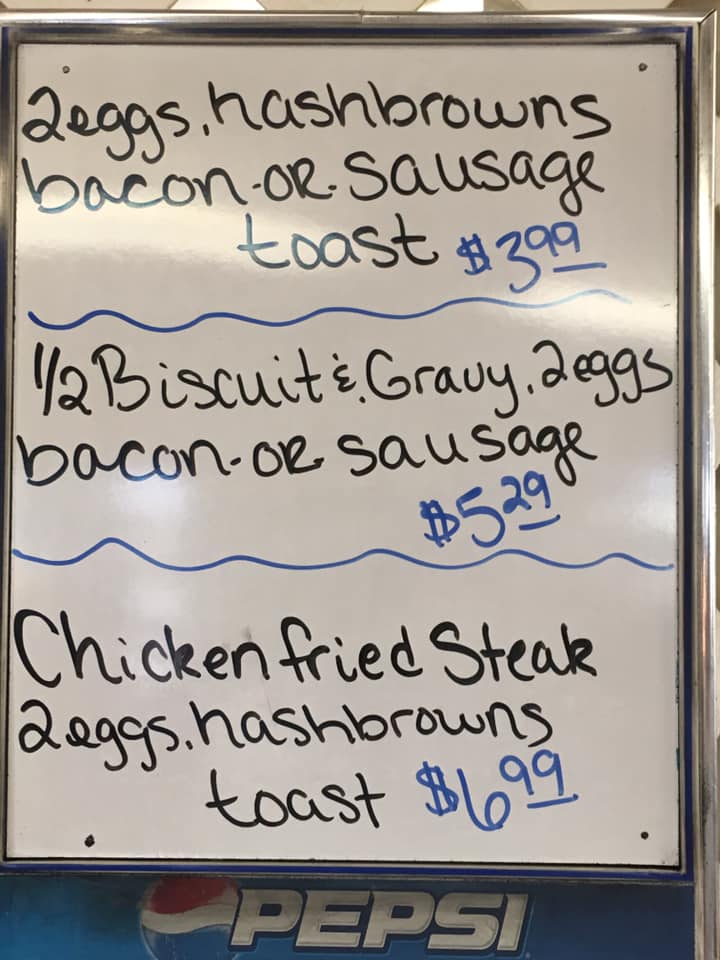 2eggs, hashbrowns
bacon-OR-Sausage
toast $3.99
1/2 Biscuit & Gravy, 2eggs
bacon-OR sausage
$5.29
Chicken fried Steak
2eggs, hashbrowns
toast $6.99
PEPSI